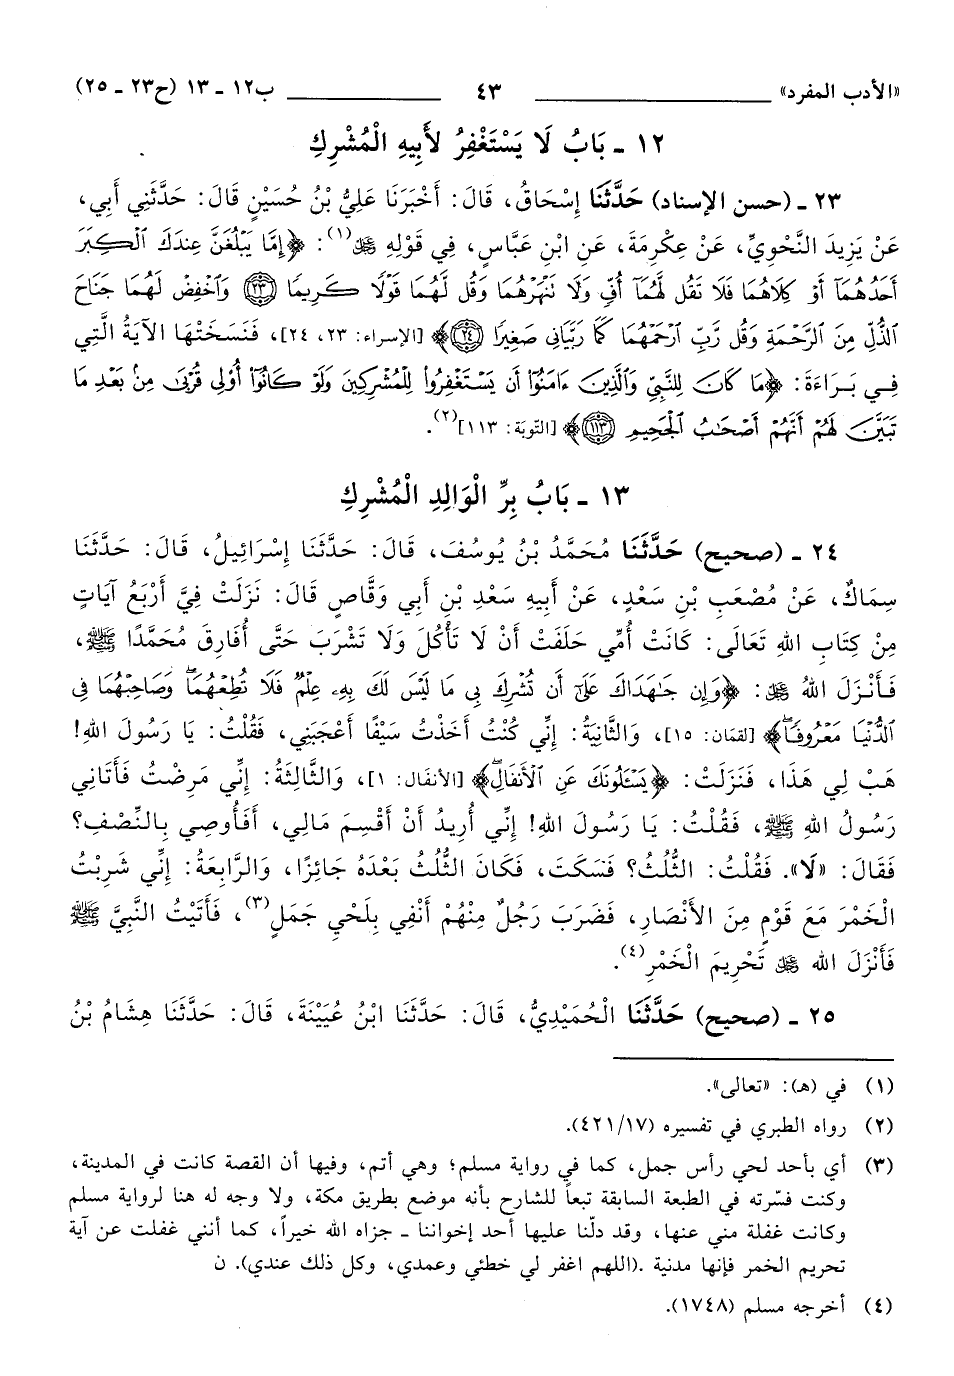 «الأدب المفرد» ٤٣ ب١٢ ـ ١٣ (ح٢٣ ـ ٢٥)
١٢ ـ بَابُ لَا يَسْتَغْفِرُ لأَبِيهِ الْمُشْرِكِ
٢٣ ـ (حسن الإسناد) حَدَّثَنَا إِسْحَاقُ، قَالَ: أَخْبَرَنَا عَلِيُّ بْنُ حُسَيْنٍ قَالَ: حَدَّثَنِي أَبِي،
عَنْ يَزِيدَ النَّحْوِيِّ، عَنْ عِكْرِمَةَ، عَنِ ابْنِ عَبَّاسٍ، فِي قَوْلِهِ ﷻ(١): ﴿إِمَّا يَبْلُغَنَّ عِندَكَ ٱلْكِبَرَ
أَحَدُهُمَآ أَوْ كِلَاهُمَا فَلَا تَقُل لَّهُمَآ أُفٍّ وَلَا نَنْهَرْهُمَا وَقُل لَّهُمَا قَوْلًا كَرِيمًا ۝٢٣ وَٱخْفِضْ لَهُمَا جَنَاحَ
ٱلذُّلِّ مِنَ ٱلرَّحْمَةِ وَقُل رَّبِّ ٱرْحَمْهُمَا كَمَا رَبَّيَانِى صَغِيرًا ۝٢٤﴾ [الإسراء: ٢٣، ٢٤]، فَنَسَخَتْهَا الآيَةُ الَّتِي
فِي بَرَاءَةَ: ﴿مَا كَانَ لِلنَّبِيِّ وَٱلَّذِينَ ءَامَنُوٓا۟ أَن يَسْتَغْفِرُوا۟ لِلْمُشْرِكِينَ وَلَوْ كَانُوٓا۟ أُو۟لِى قُرْبَىٰ مِنۢ بَعْدِ مَا
تَبَيَّنَ لَهُمْ أَنَّهُمْ أَصْحَٰبُ ٱلْجَحِيمِ ۝١١٣﴾ [التوبة: ١١٣](٢).
١٣ ـ بَابُ بِرِّ الْوَالِدِ الْمُشْرِكِ
٢٤ ـ (صحيح) حَدَّثَنَا مُحَمَّدُ بْنُ يُوسُفَ، قَالَ: حَدَّثَنَا إِسْرَائِيلُ، قَالَ: حَدَّثَنَا
سِمَاكٌ، عَنْ مُصْعَبِ بْنِ سَعْدٍ، عَنْ أَبِيهِ سَعْدِ بْنِ أَبِي وَقَّاصٍ قَالَ: نَزَلَتْ فِيَّ أَرْبَعُ آيَاتٍ
مِنْ كِتَابِ اللهِ تَعَالَى: كَانَتْ أُمِّي حَلَفَتْ أَنْ لَا تَأْكُلَ وَلَا تَشْرَبَ حَتَّى أُفَارِقَ مُحَمَّدًا ﷺ،
فَأَنْزَلَ اللهُ ﷻ: ﴿وَإِن جَٰهَدَاكَ عَلَىٰٓ أَن تُشْرِكَ بِى مَا لَيْسَ لَكَ بِهِۦ عِلْمٌ فَلَا تُطِعْهُمَا ۖ وَصَاحِبْهُمَا فِى
ٱلدُّنْيَا مَعْرُوفًا ۖ﴾ [لقمَان: ١٥]، وَالثَّانِيَةُ: إِنِّي كُنْتُ أَخَذْتُ سَيْفًا أَعْجَبَنِي، فَقُلْتُ: يَا رَسُولَ اللهِ!
هَبْ لِي هَذَا، فَنَزَلَتْ: ﴿يَسْـَٔلُونَكَ عَنِ ٱلْأَنفَالِ ۖ﴾ [الأنفَال: ١]، وَالثَّالِثَةُ: إِنِّي مَرِضْتُ فَأَتَانِي
رَسُولُ اللهِ ﷺ، فَقُلْتُ: يَا رَسُولَ اللهِ! إِنِّي أُرِيدُ أَنْ أَقْسِمَ مَالِي، أَفَأُوصِي بِالنِّصْفِ؟
فَقَالَ: «لَا». فَقُلْتُ: الثُّلُثُ؟ فَسَكَتَ، فَكَانَ الثُّلُثُ بَعْدَهُ جَائِزًا، وَالرَّابِعَةُ: إِنِّي شَرِبْتُ
الْخَمْرَ مَعَ قَوْمٍ مِنَ الأَنْصَارِ، فَضَرَبَ رَجُلٌ مِنْهُمْ أَنْفِي بِلَحْيِ جَمَلٍ(٣)، فَأَتَيْتُ النَّبِيَّ ﷺ
فَأَنْزَلَ الله ﷻ تَحْرِيمَ الْخَمْرِ(٤).
٢٥ ـ (صحيح) حَدَّثَنَا الْحُمَيْدِيُّ، قَالَ: حَدَّثَنَا ابْنُ عُيَيْنَةَ، قَالَ: حَدَّثَنَا هِشَامُ بْنُ
(١) في (هـ): «تعالى».
(٢) رواه الطبري في تفسيره (٤٢١/١٧).
(٣) أي بأحد لحي رأس جمل، كما في رواية مسلم؛ وهي أتم، وفيها أن القصة كانت في المدينة،
وكنت فسّرته في الطبعة السابقة تبعاً للشارح بأنه موضع بطريق مكة، ولا وجه له هنا لرواية مسلم
وكانت غفلة مني عنها، وقد دلّنا عليها أحد إخواننا ـ جزاه الله خيراً، كما أنني غفلت عن آية
تحريم الخمر فإنها مدنية .(اللهم اغفر لي خطئي وعمدي، وكل ذلك عندي). ن
(٤) أخرجه مسلم (١٧٤٨).